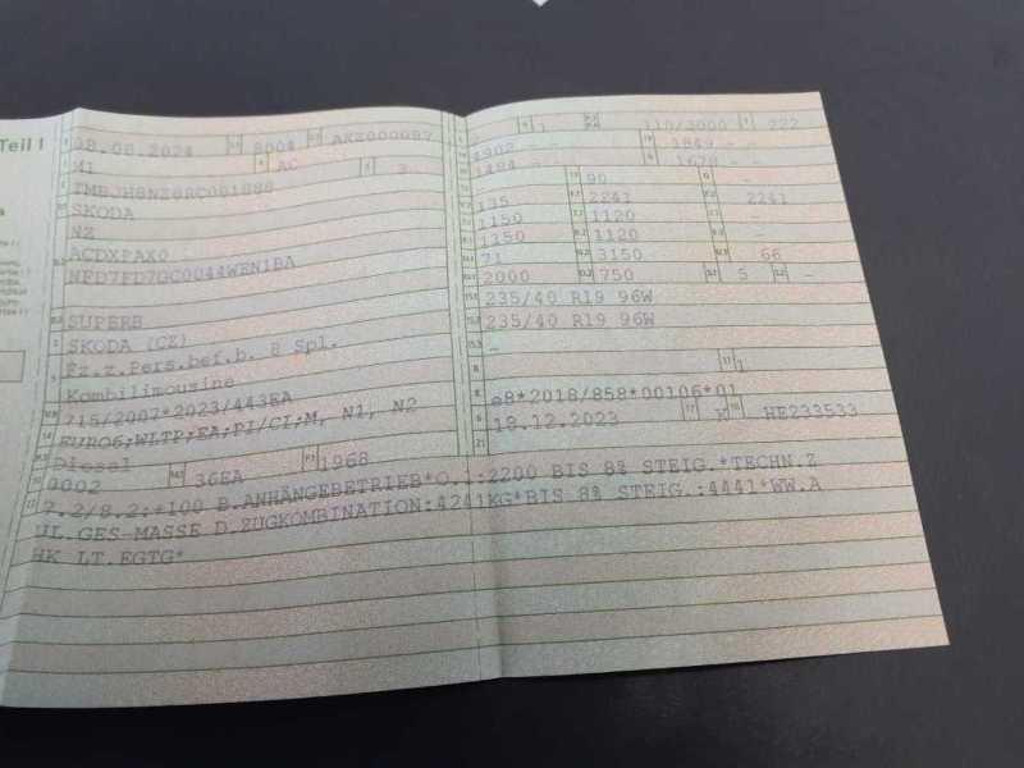 Teil I
08.08.2024 8004 AKZ000087
M1 AC
SKODA
NZ
ACDXPAX0
SUPERB
SKODA (CZ)
Fz.z.Pers.bef.b. 8 Spl.
Kombilimousine
715/2007*2023/443EA
EURO6;WLTP;EA;PI/CI;M, N1, N2
Diesel
0002 36EA 1968
7.2/8.2:+100 B.ANHÄNGEBETRIEB*O.1:2200 BIS 8% STEIG.*TECHN.Z
UL.GES-MASSE D.ZUGKOMBINATION:4241KG*BIS 8% STEIG.:4441*WW.A
HK LT.EGTG*
1 110/3000 222
4902 - - 1849 - -
1484 - - 1678 - -
90 -
135 2241 2241
1150 1120 -
1150 1120 -
71 3150 66
2000 750 5 -
235/40 R19 96W
235/40 R19 96W
-
1
e8*2018/858*00106*01
18.12.2023 HE233533